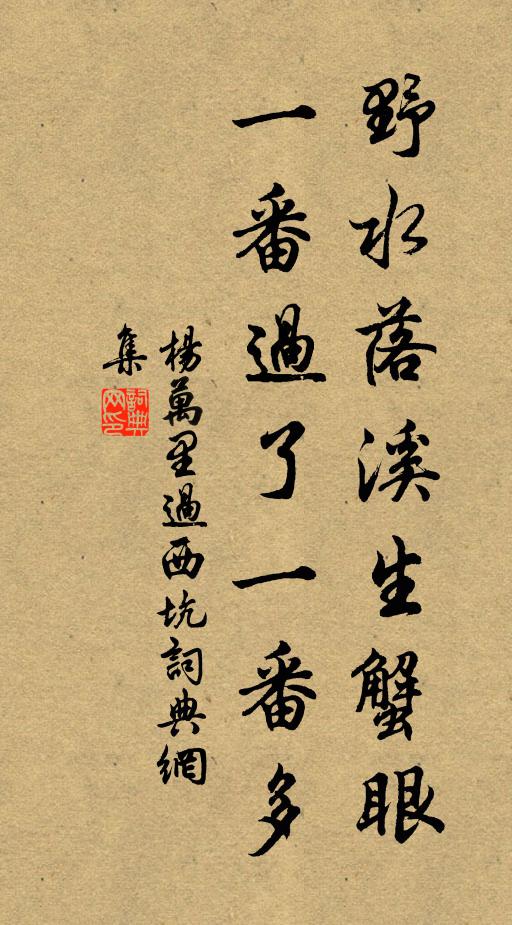 野水落溪生蟹眼
一番過了一番多
楊萬里過西坑詞典網
集
詞典
网印